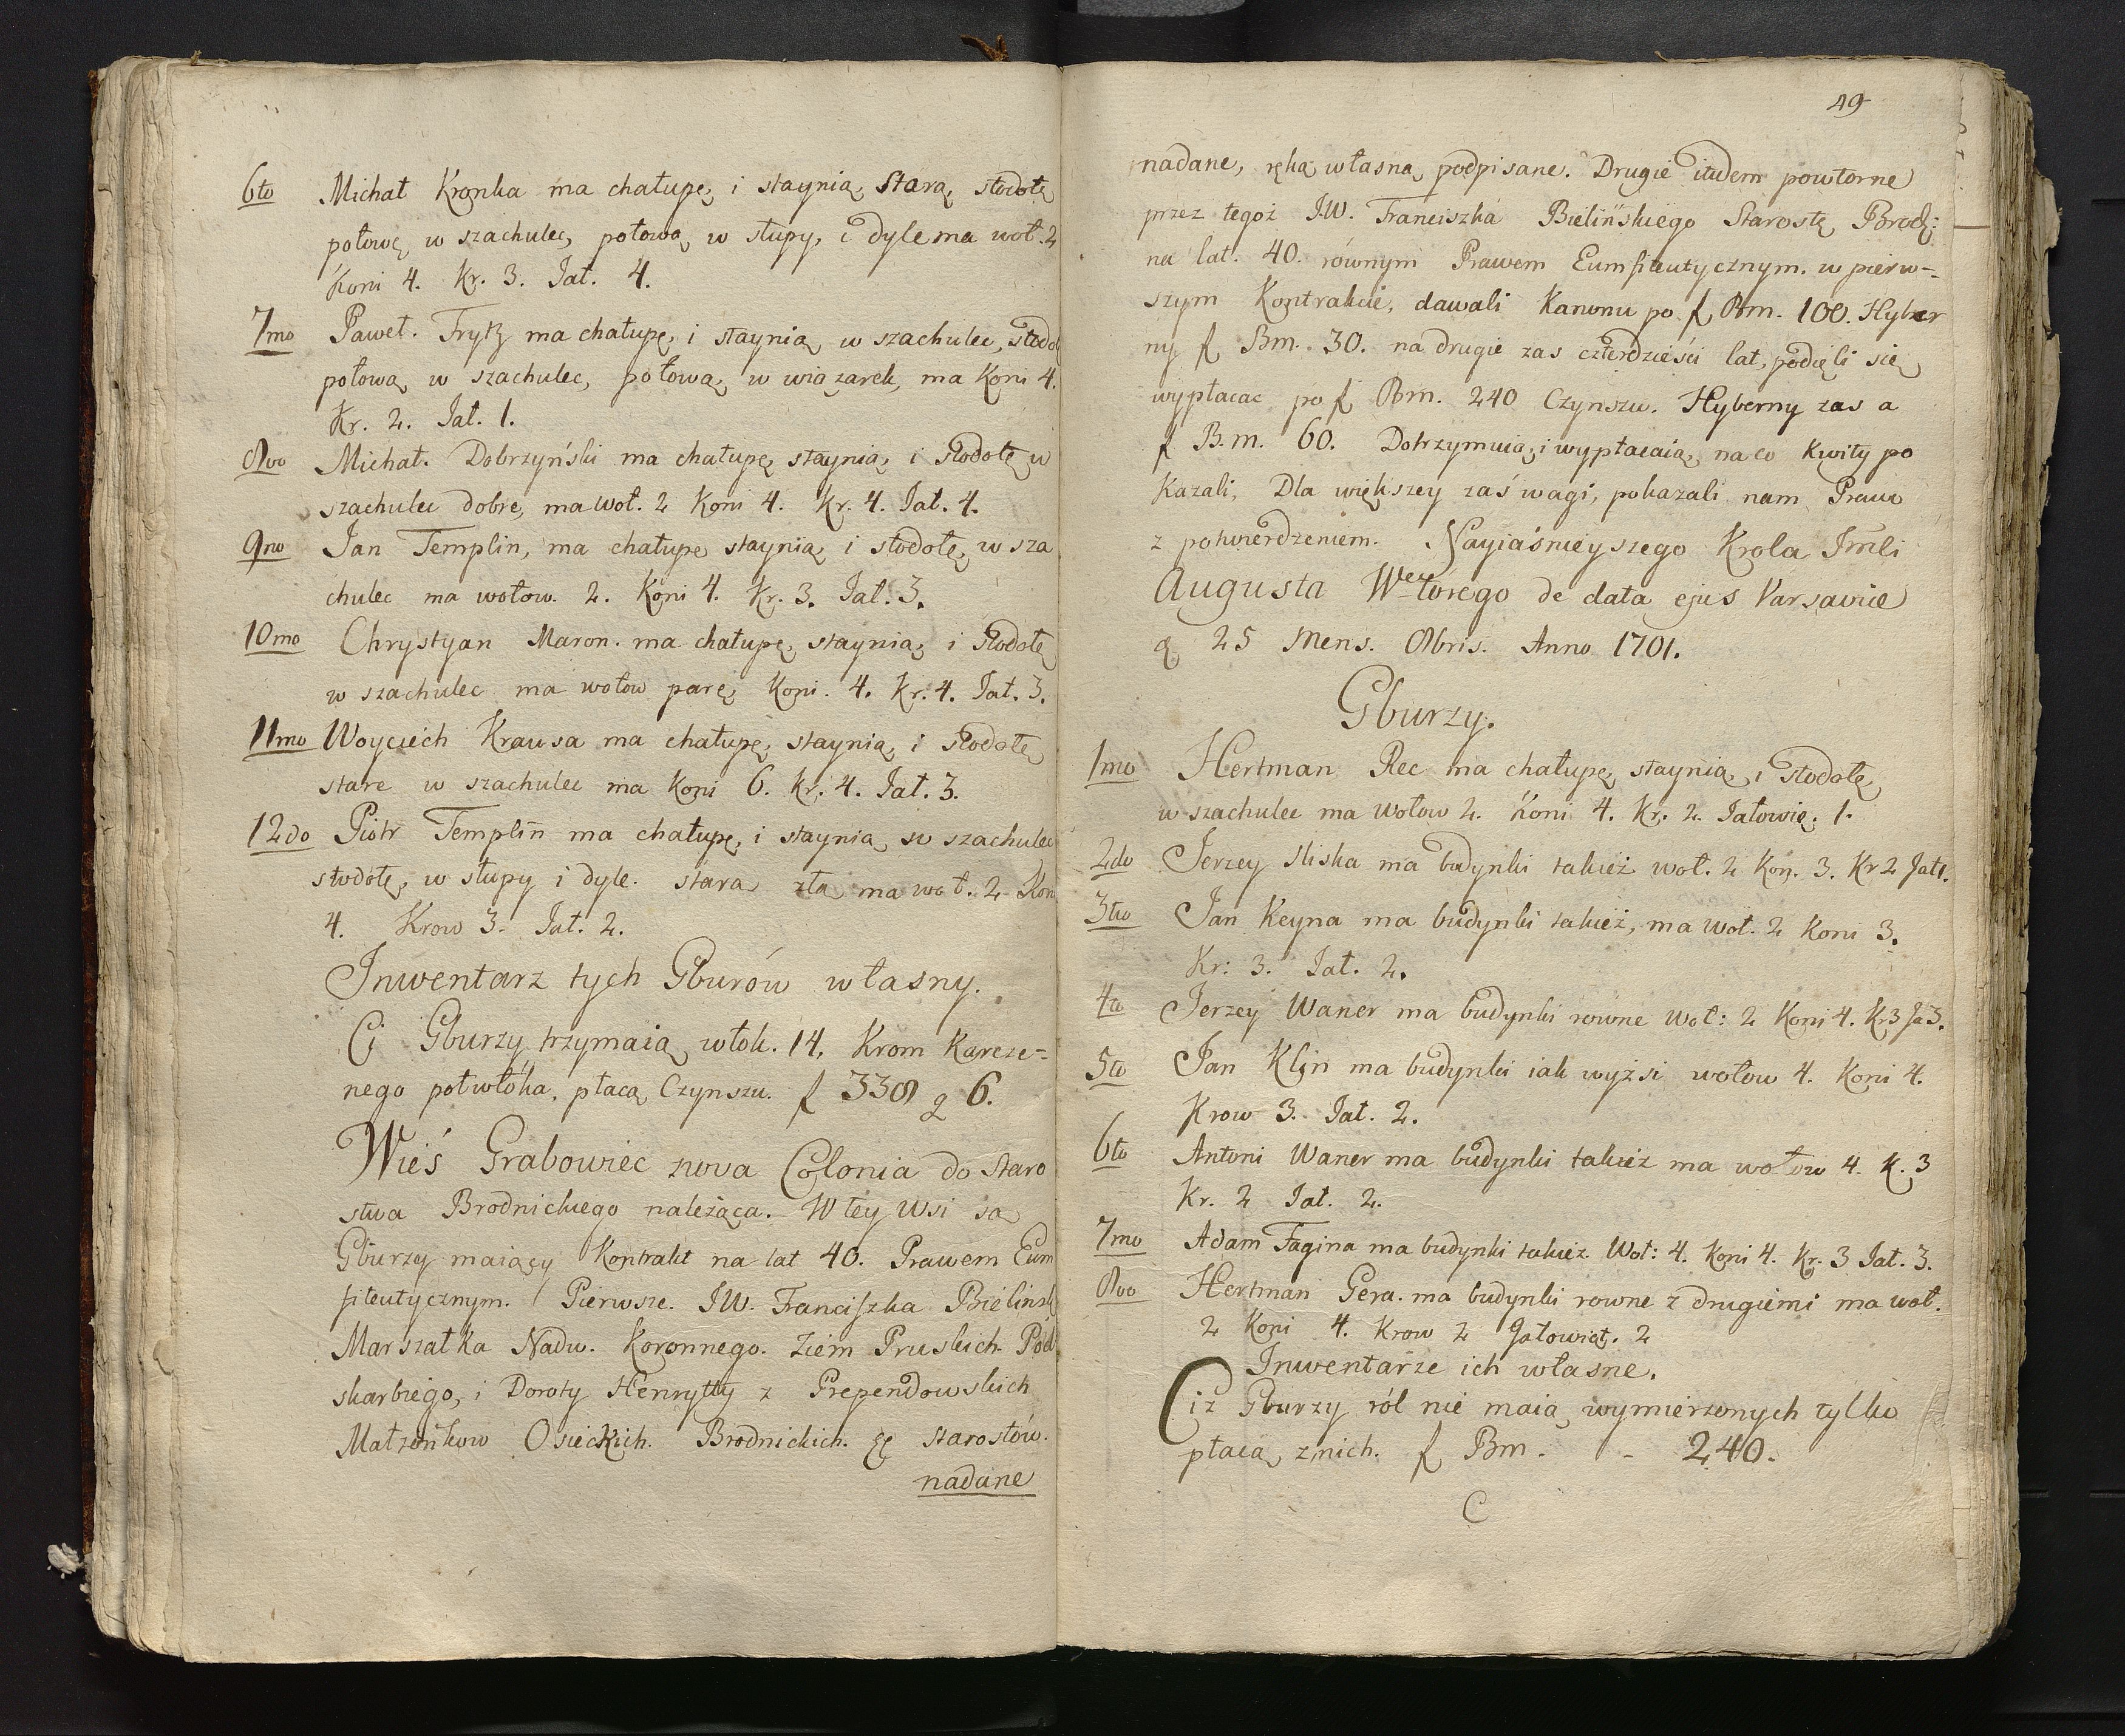 6to Michał Kronka ma chałupę, i staynią, Starą stodołę
połowę w szachulec, połową w słupy, i dyle ma woł. 2
Koni 4. Kr. 3. Jał. 4.
7mo Paweł. Frytz ma chałupę, i staynią w szachulec, stodoł
połową w szachulec, połową w wiązarek, ma Koni 4.
Kr. 2. Jał. 1.
8vo Michał. Dobrzyński ma chałupę, staynią, i stodołę w
szachulec dobre, ma woł. 2 Koni 4. Kr. 4. Jał. 4.
9no Jan Templin, ma chałupe staynią, i stodołę, w sza
chulec ma wołow. 2. Koni 4. Kr. 3. Jał. 3.
10mo Chrystyan Maron. ma chałupę, staynią, i stodołę
w szachulec ma wołow parę, Koni. 4. Kr. 4. Jał. 3.
11mo Woyciech Krausa ma chałupę, staynią, i stodołę
stare w szachulec ma Koni 6. Kr. 4. Jał. 3.
12do Piotr Templin ma chałupę, i staynią w szachulec
stodołę, w słupy i dyle. stara zła ma woł. 2 Kon
4. Krow 3. Jał. 2.
Inwentarz tych Gburów własny.
Ci Gburzy trzymaią włok. 14. Krom Karcze-
nego połwłoka, płacą Czynszu. f 338 g 6.
Wieś Grabowiec nowa Colonia do Staro
stwa Brodnickiego należąca. W tey Wsi są
Gburzy maiący Kontrakt na lat 40. Prawem Eum
fiteutycznym. Pierwsze. J.W. Franciszka Bielinsk
Marszałka Nadw. Koronnego. Ziem Pruskich. Pod
skarbiego, i Doroty Henrytty z Prependowskich
Małżonkow Osieckich. Brodnickich. &c Starostów.
nadane
49
nadane, ręką własną podpisane. Drugie itidem powtorne
przez tegoż J.W. Franciszka Bielińskiego Starostę Brod:
na lat. 40. równym Prawem Eumfiteutycznym. w pierw-
szym Kontrakcie, dawali Kanonu po f Bm. 100. Hyber
ny f Bm. 30. na drugie zas czterdzieści lat, podięli się
wypłacac po f Bm. 240 Czynszu. Hyberny zas a
f B.m. 60. Dotrzymuią, i wypłacaią, na co Kwity po
Kazali, Dla większey zaś wagi, pokazali nam Prawo
z potwierdzeniem. Nayiaśnieyszego Krola Jmći
Augusta Wtorego de data ejus Varsaviæ
25 Mens. 8bris. Anno 1701.
Gburzy.
1mo Hertman Rec ma chałupę, staynią, i stodołę
w szachulec ma Wołow 2. Koni 4. Kr. 2. Jałowię. 1.
2do Jerzey Sliska ma budynki takież woł. 2 Kon. 3. Kr 2 Jał 1.
3tio Jan Keyna ma budynki takież, ma woł. 2 Koni 3.
Kr: 3. Jał. 2.
4to Jerzey Waner ma budynki rowne Woł: 2 Koni 4. Kr 3 Ja 3.
5to Jan Klin ma budynki iak wyżsi wołow 4. Koni 4.
Krow 3. Jał. 2.
6to Antoni Waner ma budynki takież ma wołow 4. K. 3
Kr. 2 Jał. 2.
7mo Adam Fagina ma budynki takież. Woł: 4. Koni 4. Kr. 3 Jał. 3.
8vo Hertman Gera. ma budynki rowne z drugiemi ma woł.
2 Koni 4. Krow 2 Jałowiąt. 2
Inwentarze ich własne.
Ciż Gburzy ról nie maią wymierzonych tylko
płacą z nich. f Bm. - - 240.
C